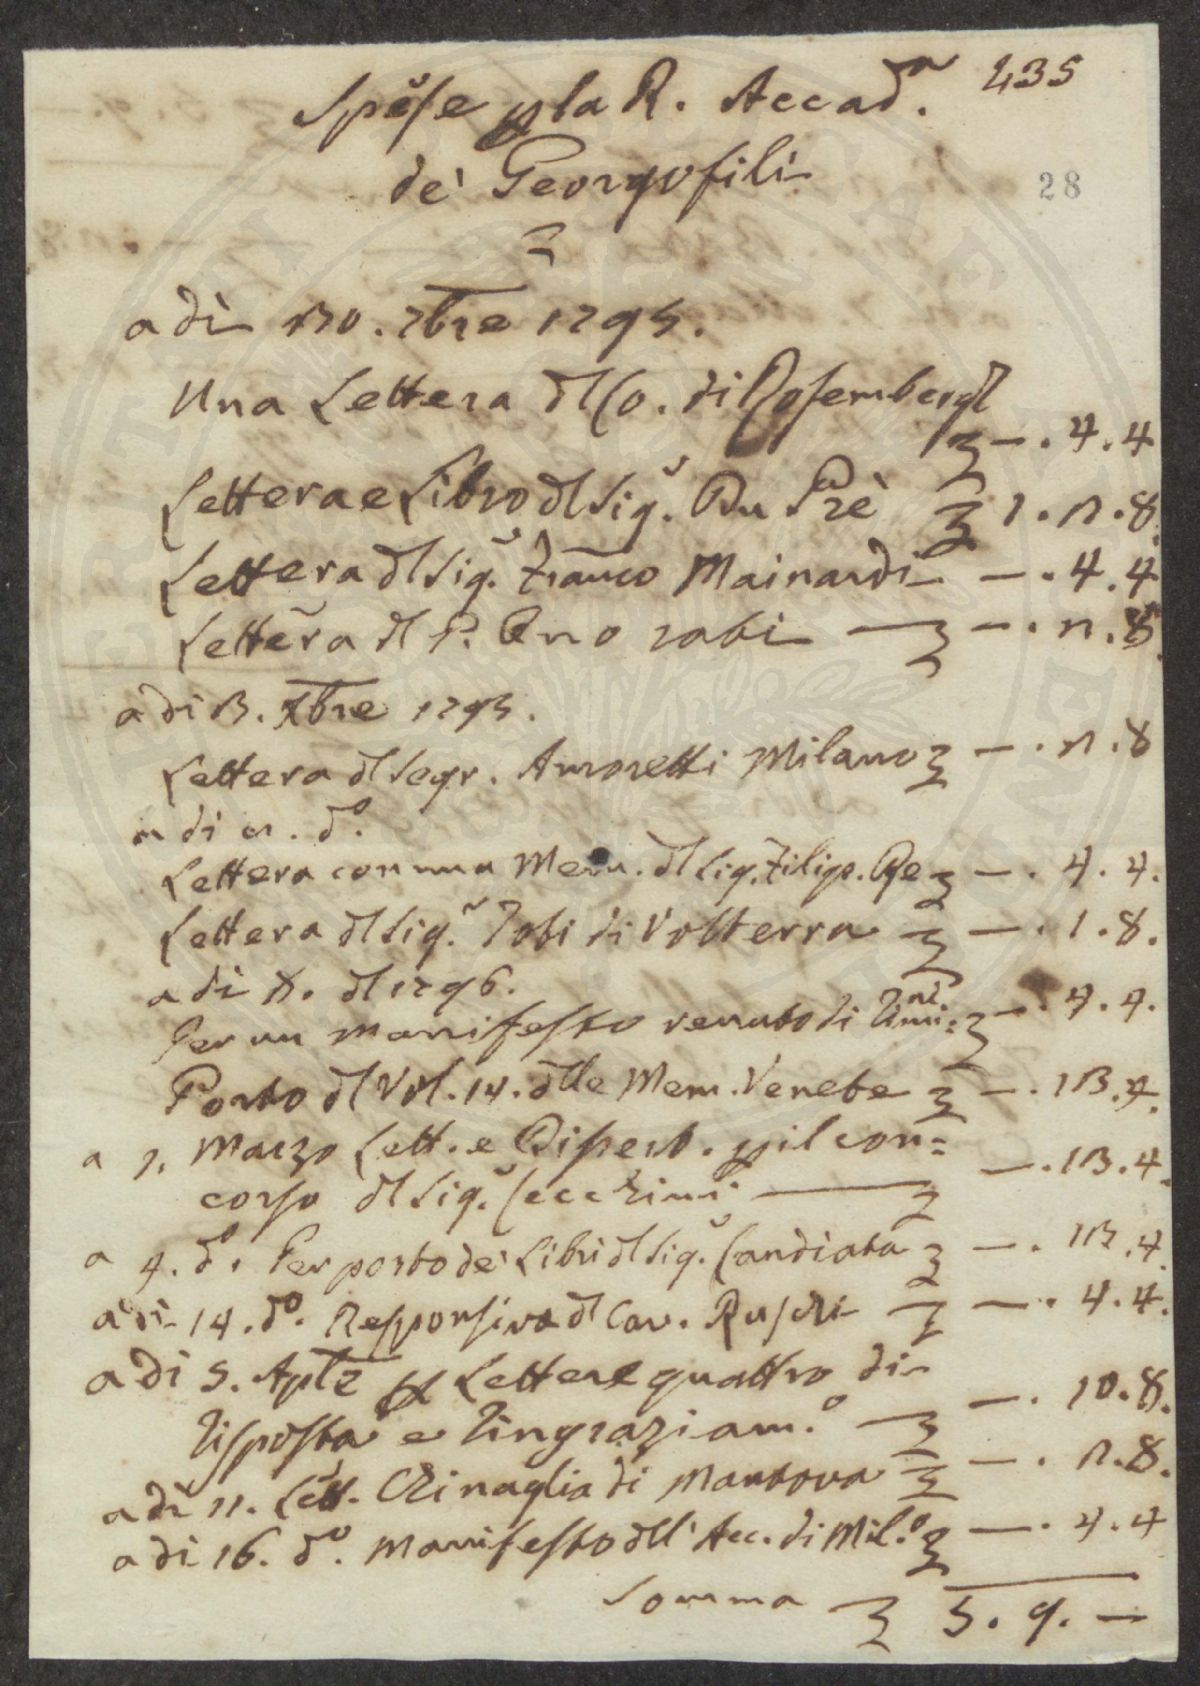 Spese p la R. Accad.a 435
de' Georgofili
28
a dì 30. 7bre 1795.
Una Lettera dl Co. di Rosemberg
— . 4 . 4
Lettera e Libro dl Sig.r Du Prè 1 . n . 8
Lettera dl Sig.r Franco Mainardi — . 4 . 4
Lettera dl P. — . n . 8
a di 3. Xbre 1795.
Lettera dl Segr. Amoretti Milano — . n . 8
a di . d.o
Lettera con una Mem. dl Sig. Filipo. Re — . 4 . 4.
Lettera dl Sig.r Tobi di Volterra — . 1 . 8.
a dì 8. dl 1796.
Per un Manifesto venuto di — . 4 . 4.
Porto dl Vol. 14. dlle Mem. Venete — . 13 . 4.
a 1. Marzo Lett. e Dissert. p il con=
corso dl Sig.r Cecchini — . 13 . 4.
a 4. d.o. Per porto de' Libri dl Sig.r Candiata — . 13 . 4
a dì 14. d.o. Responsiva dl Cav. Ruschi — . 4 . 4.
a di 5. Aple p Lettere quattro di
risposta e ringraziam.o — . 10 . 8.
a dì 11. Lett. Chinaglia di Mantova — . n . 8.
a di 16. d.o. Manifesto dll' Acc. di Mil.o — . 4 . 4
Somma 5 . 9 . —